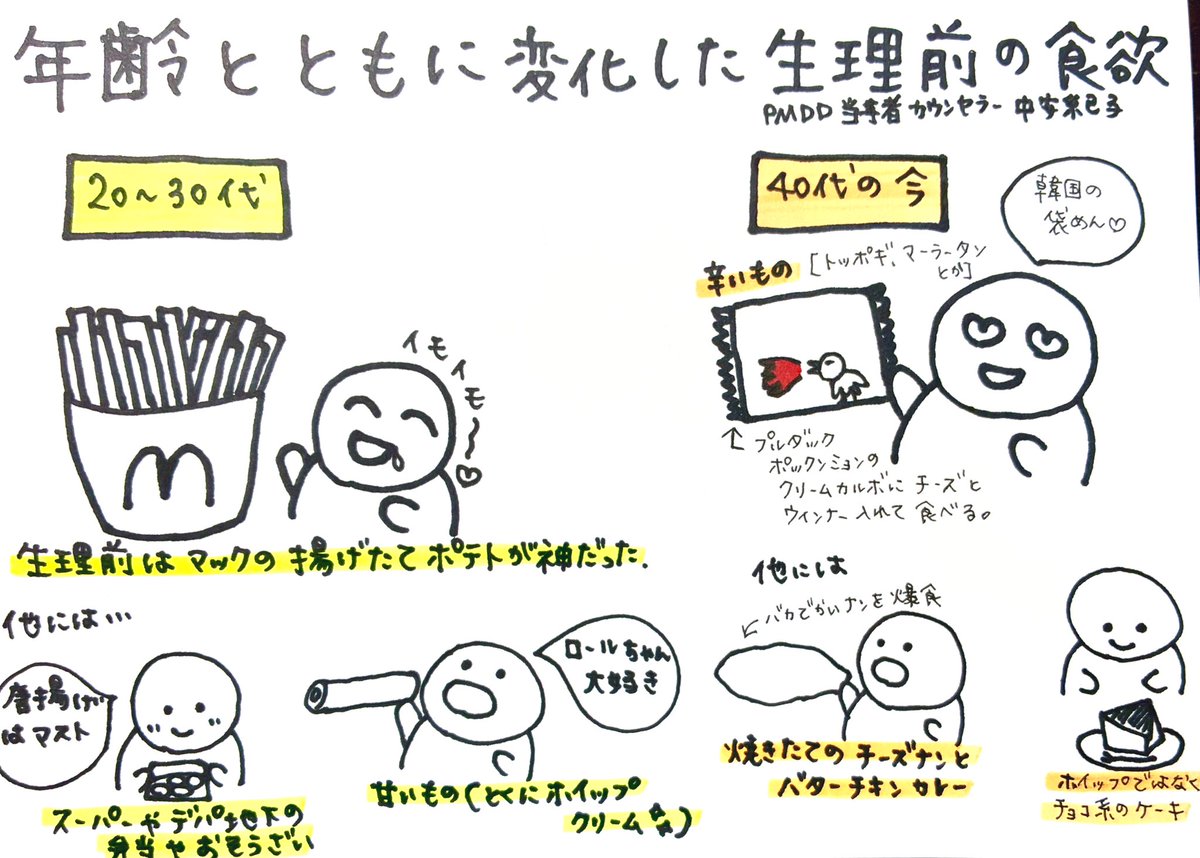 年齢とともに変化した生理前の食欲
PMDD当事者カウンセラー 中安京己子
20〜30代
イモイモ〜〜♡
M
生理前はマックの揚げたてポテトが神だった.
他には…
唐揚げ
はマスト
スーパーやデパ地下の
弁当やおそうざい
ロールちゃん
大好き
甘いもの(とくにホイップ
クリーム)
40代の今
韓国の
袋めん♡
辛いもの
[トッポギ、マーラータン
とか]
↑ブルダック
ポックンミョンの
クリームカルボにチーズと
ウィンナー入れて食べる。
他には
↙バカでかいナンを爆食
焼きたてのチーズナンと
バターチキンカレー
ホイップではなく
チョコ系のケーキ